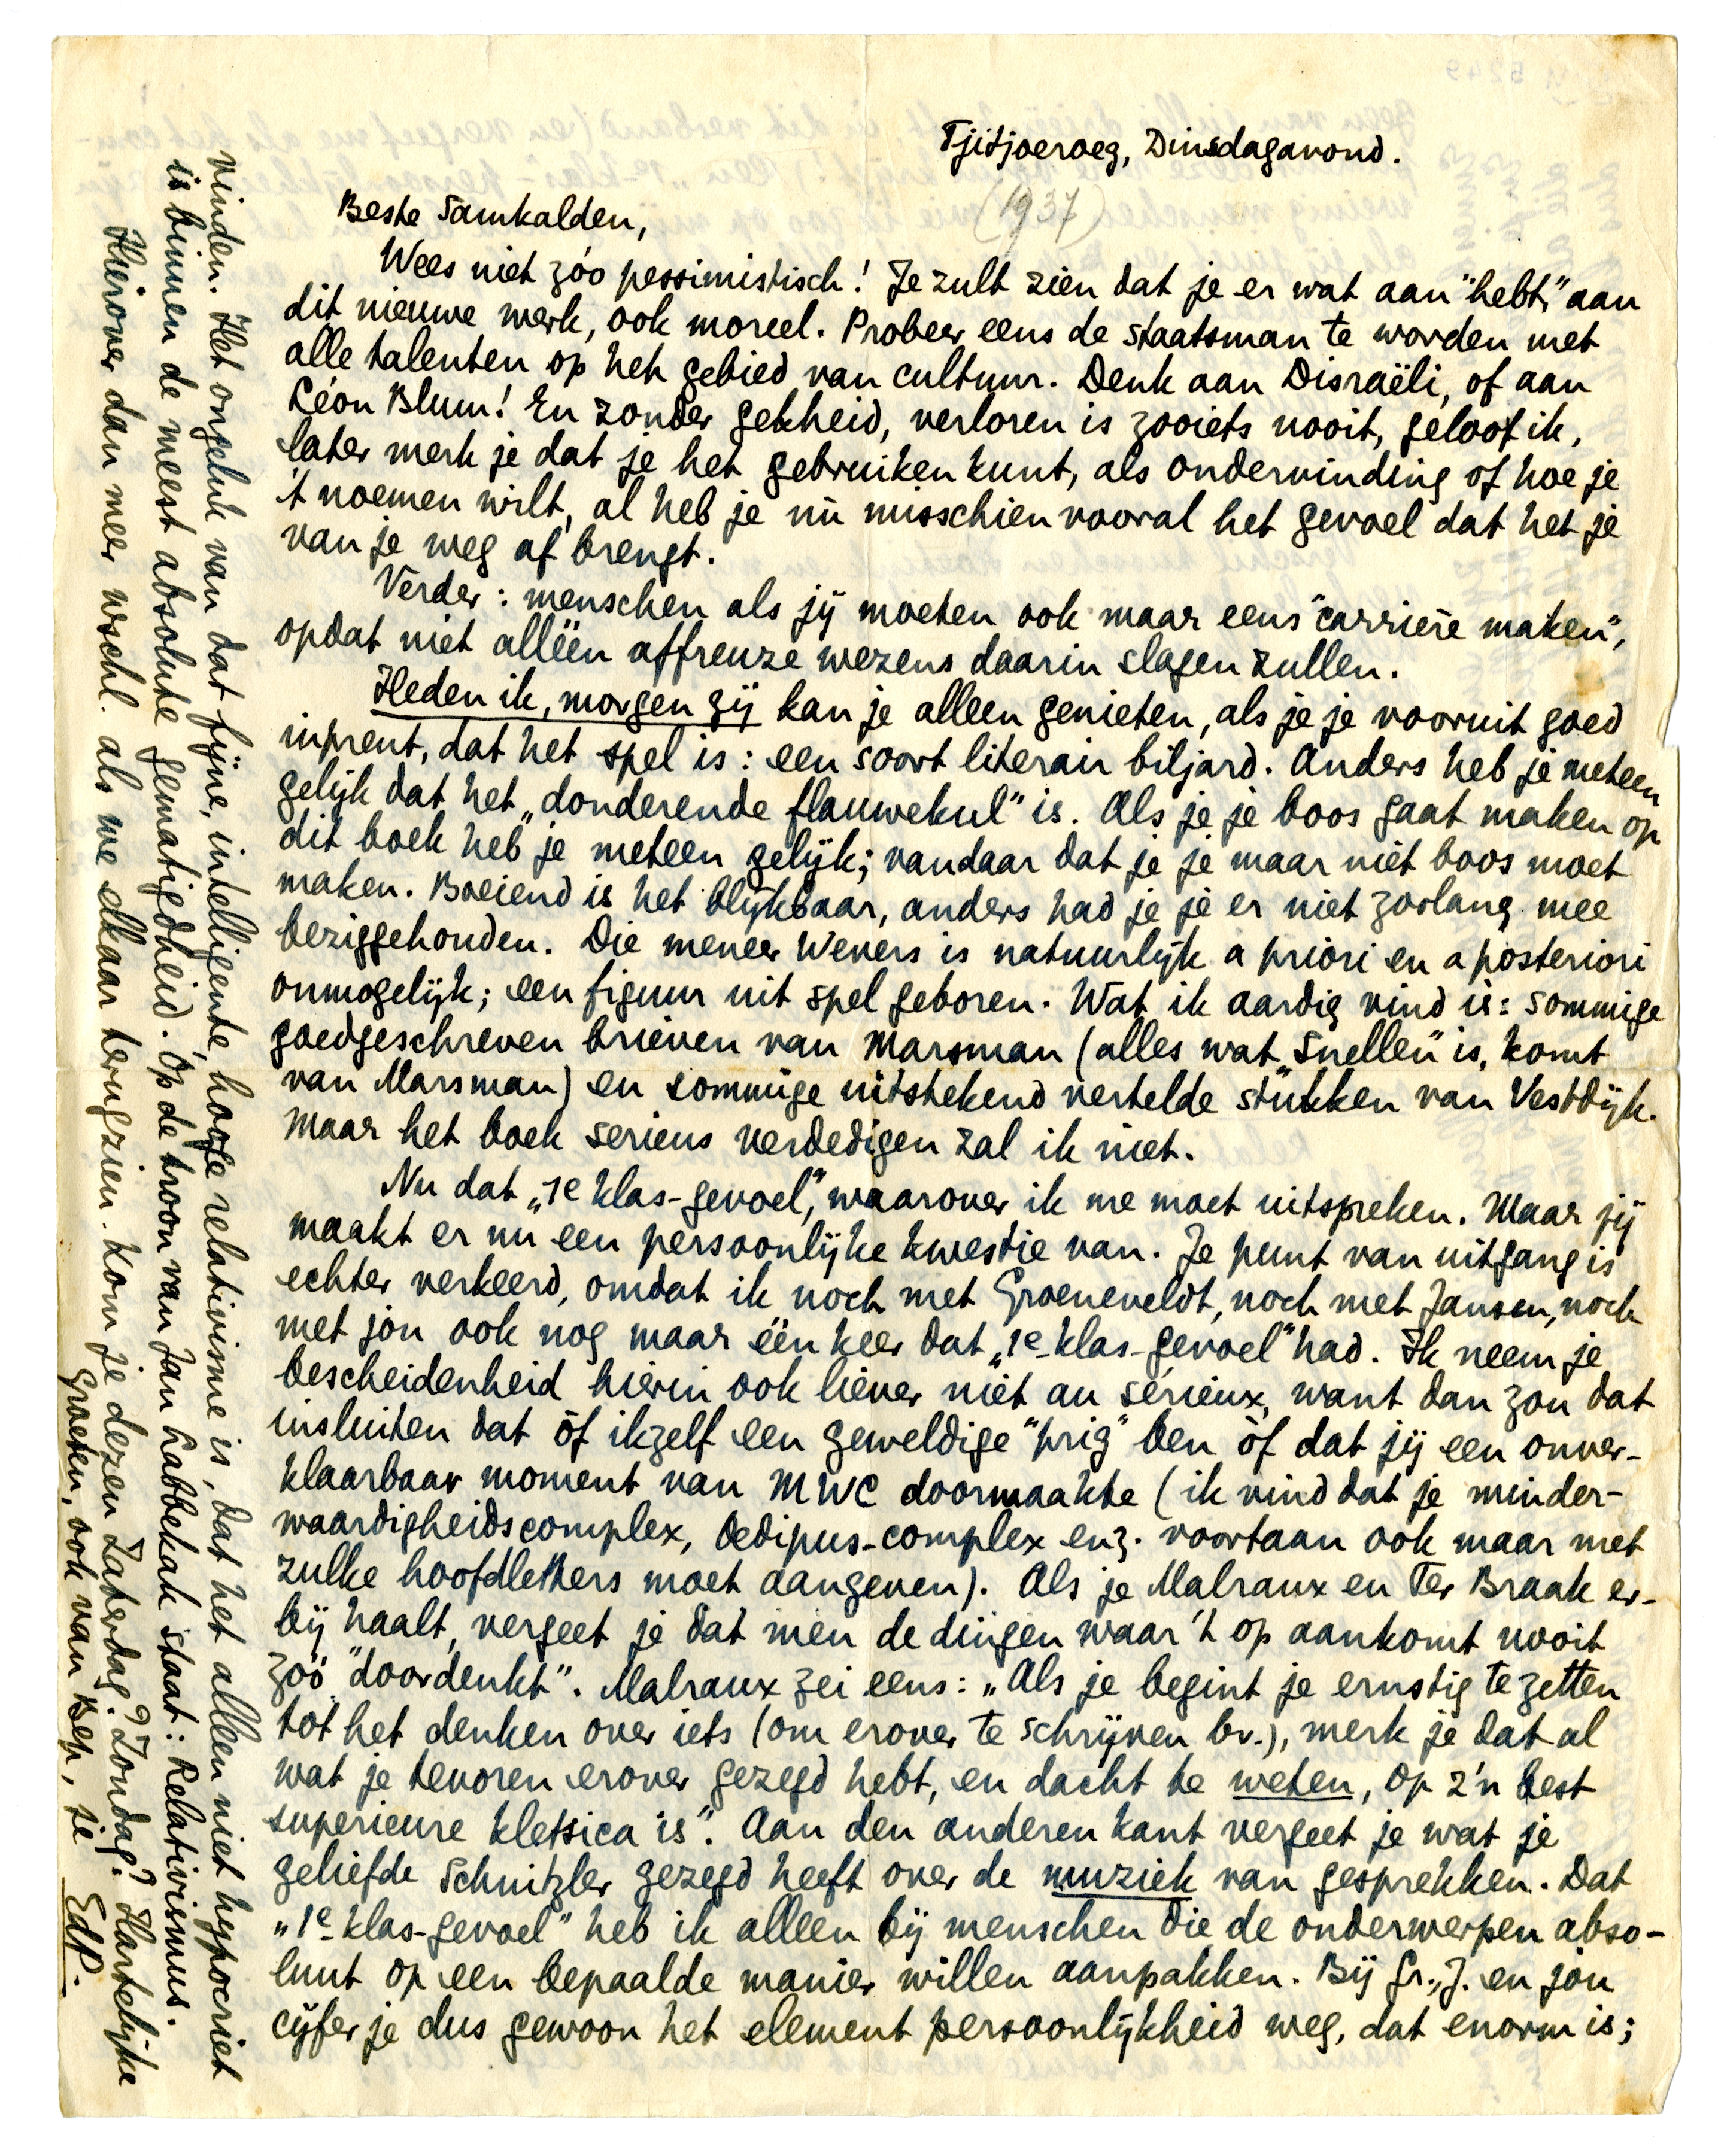 Tjitjoeroeg, Dinsdagavond.
(1937)
Beste Samkalden,
Wees niet zóo pessimistisch! Je zult zien dat je er wat aan "hebt," aan
dit nieuwe werk, ook moreel. Probeer eens de staatsman te worden met
alle talenten op het gebied van cultuur. Denk aan Disraëli, of aan
Léon Blum! En zonder gekheid, verloren is zooiets nooit, geloof ik,
later merk je dat je het gebruiken kunt, als ondervinding of hoe je
't noemen wilt, al heb je nù misschien vooral het gevoel dat het je
van je weg af brengt.
Verder: menschen als jij moeten ook maar eens "carrière maken",
opdat niet alléén affreuze wezens daarin slagen zullen.
Heden ik, morgen zij kan je alleen genieten, als je je vooruit goed
inprent, dat het spel is: een soort literair biljard. Anders heb je meteen
gelijk dat het „donderende flauwekul" is. Als je je boos gaat maken op
dit boek heb je meteen gelijk; vandaar dat je je maar niet boos moet
maken. Boeiend is het blijkbaar, anders had je je er niet zoolang mee
beziggehouden. Die meneer Wevers is natuurlijk a priori en a posteriori
onmogelijk; een figuur uit spel geboren. Wat ik aardig vind is: sommige
goedgeschreven brieven van Marsman (alles wat „Snellen" is, komt
van Marsman) en sommige uitstekend vertelde stukken van Vestdijk.
Maar het boek serieus verdedigen zal ik niet.
Nu dat „1e klas-gevoel", waarover ik me moet uitspreken. Maar jij
maakt er nu een persoonlijke kwestie van. Je punt van uitgang is
echter verkeerd, omdat ik noch met Groeneveldt, noch met Jansen, noch
met jou ook nog maar één keer dat „1e klas-gevoel" had. Ik neem je
bescheidenheid hierin ook liever niet au sérieux, want dan zou dat
insluiten dat òf ikzelf een geweldige "prig" ben òf dat jij een onver-
klaarbaar moment van MWC doormaakte (ik vind dat je minder-
waardigheidscomplex, Oedipus-complex enz. voortaan ook maar met
zulke hoofdletters moet aangeven). Als je Malraux en Ter Braak er-
bij haalt, vergeet je dat men de dingen waar 't op aankomt nooit
zóó "doordenkt". Malraux zei eens: „Als je begint je ernstig te zetten
tot het denken over iets (om erover te schrijven bv.), merk je dat al
wat je tevoren erover gezegd hebt, en dacht te weten, op z'n best
superieure kletsica is". Aan den anderen kant vergeet je wat je
geliefde Schnitzler gezegd heeft over de muziek van gesprekken. Dat
„1e klas-gevoel" heb ik alleen bij menschen die de onderwerpen abso-
luut op een bepaalde manier willen aanpakken. Bij Gr., J. en jou
cijfer je dus gewoon het element persoonlijkheid weg, dat enorm is;
vinden. Het ongeluk van dat fijne, intelligente, hooge relativisme is, dat het alleen niet hypocriet
is binnen de meest absolute gematigdheid. Op de troon van Jan Labbekak staat: Relativismus.
Hierover dan meer wschl. als we elkaar terugzien. Kom je dezen Zaterdag? Zondag? Hartelijke
groeten, ook van Bep, je EdP.